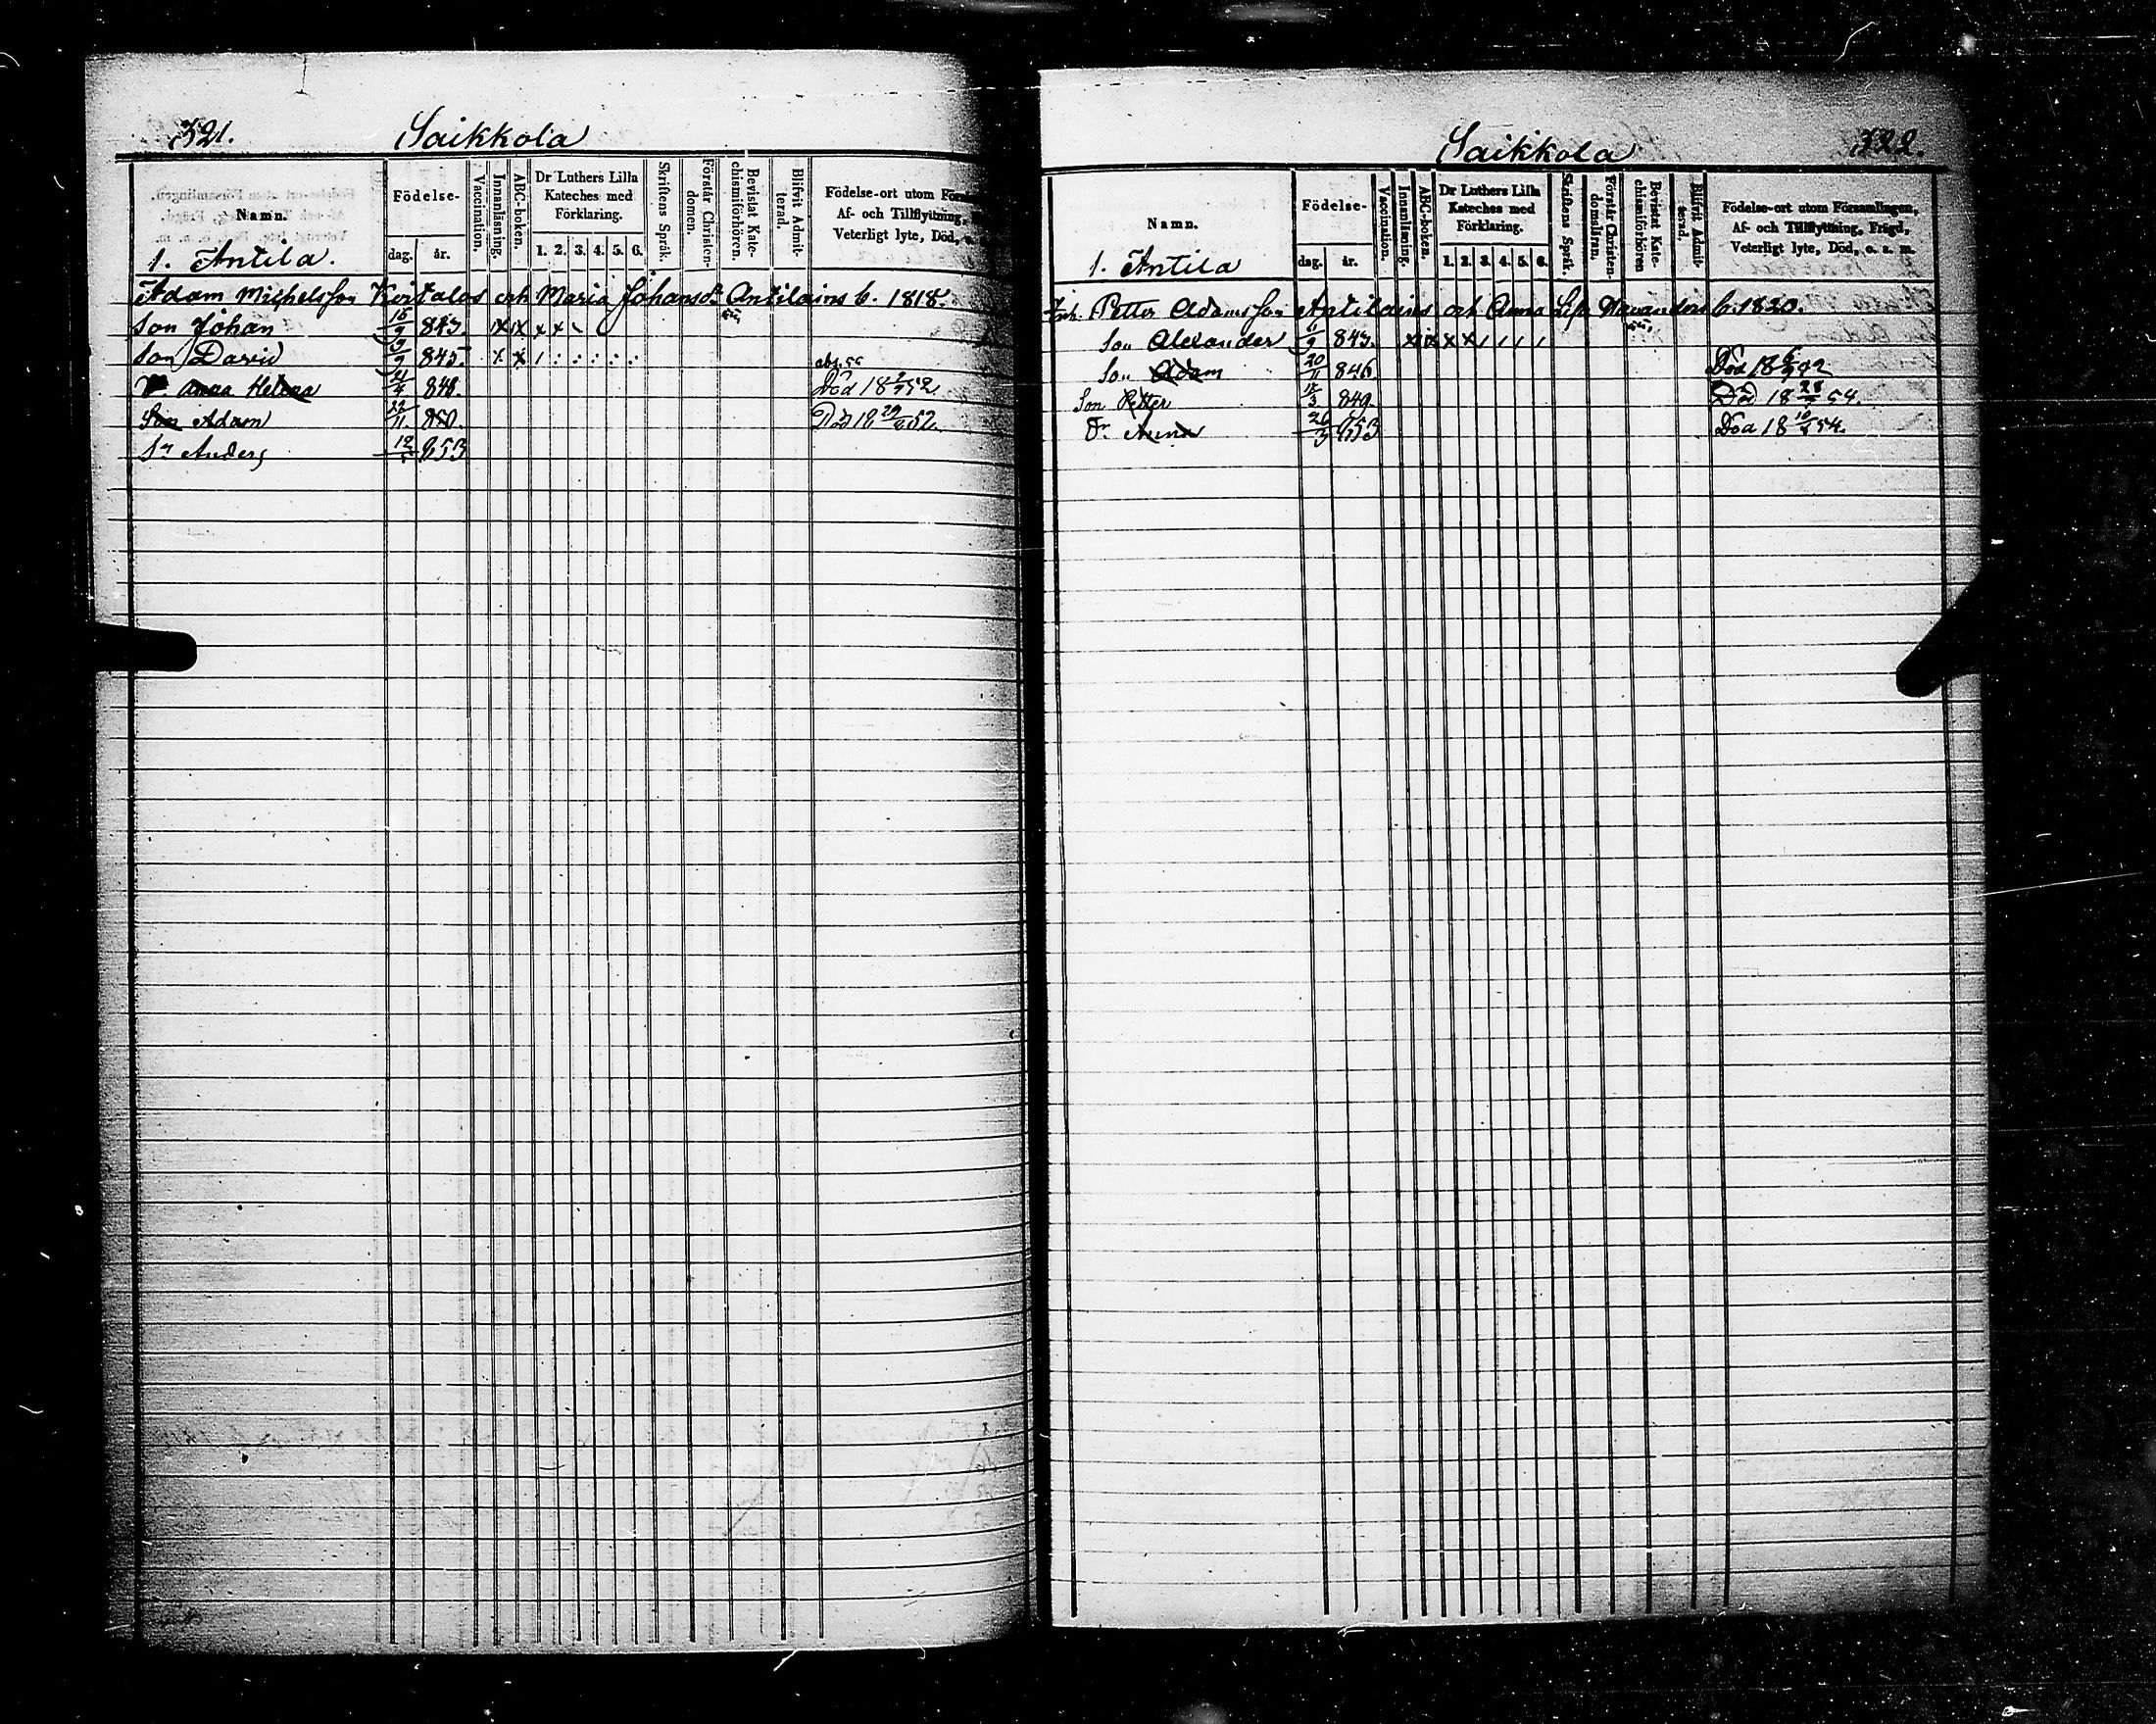 321. Saikkola
Namn.
Födelse-
dag. år.
Vaccination.
Innanläsning.
ABC-boken.
Dr Luthers Lilla Kateches med Förklaring.
1. 2. 3. 4. 5. 6.
Skriftens Språk.
Förstår Christen-domen.
Bevistat Kate-chismiförhören.
Blifvit Admit-terad.
Födelse-ort utom Förs
Af- och Tillflyttning,
Veterligt lyte, Död, o.
1. Antila.
Adam Michelsson och Maria Johansdr Antilains b. 1818.
Son Johan 843. x x x x
Son David 9/9 845. x x 1 : : : : :
abs. 55
Dr Anna Helena 848. Död 18 52
Son Adam 22/11 850. Död 18 52
Sn Anders 12 853
Saikkola 322.
Namn.
Födelse-
dag. år.
Vaccination.
Innanläsning.
ABC-boken.
Dr Luthers Lilla Kateches med Förklaring.
1. 2. 3. 4. 5. 6.
Skriftens Språk.
Förstår Christen-domsläran.
Bevistat Kate-chismiförhören
Blifvit Admit-terad.
Födelse-ort utom Församlingen,
Af- och Tillflyttning, Frägd,
Veterligt lyte, Död, o. s. m.
1. Antila
Petter Adamsson Antilains och Anna Lisa b. 1820.
Son Alexander 843. x x x x 1 1 1 1
Son Adam 20/11 846. Död 18
Son Petter 849. Död 18 54.
Dr Anna 26 853 Död 18 54.